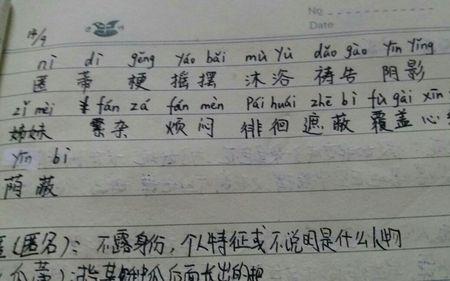 No
Date
nì dì gěng yáo bǎi mù yù dǎo gào yīn yǐng
匿 蒂 梗 摇摆 沐浴 祷告 阴影
zǐ mèi fán zá fán mèn pái huái zhē bì fù gài xīn
姊妹 繁杂 烦闷 徘徊 遮蔽 覆盖 心
yīn bì
荫蔽
(匿名)：不露身份，个人特征或不说明是什么人物